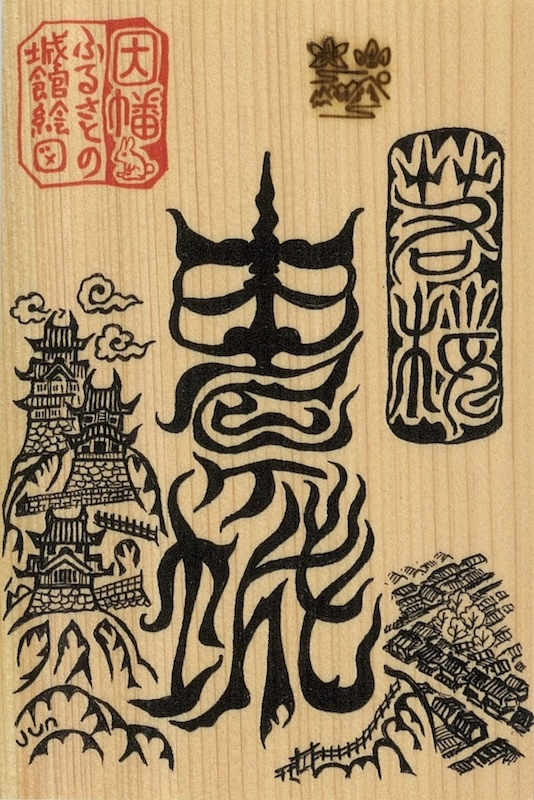 因幡
ふるさとの
城館絵図
若桜
鬼ヶ城
Jun